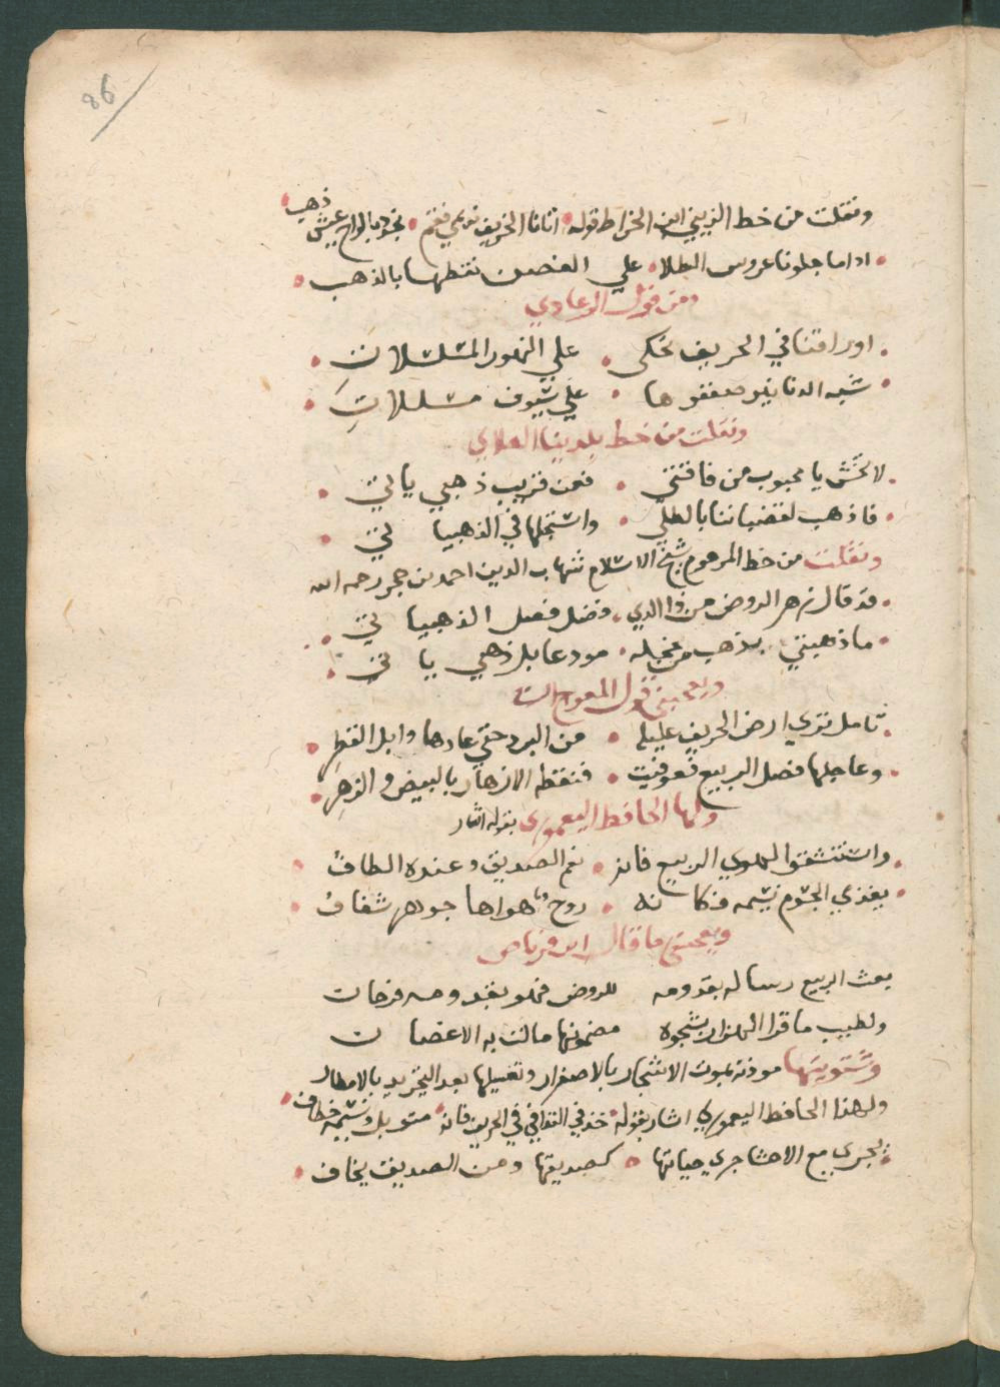 86
ونقلت من خط الزيني ابن الخراط قوله اتانا الخريف فقم بنا عيش ذهب
اذا ما جلونا عروس الطلا علي الغصن نقطها بالذهب
ومن قول الوعادي
اوراقنا في الخريف تحكي علي النهور المسلسلات
شبه الدنانير صففوها علي سيوف مسللات
ونقلت من خط بلدينا العلاي
لا تخش يا محبوب من فاقتي فعن قريب ذهبي ياتي
فاذهب لقضباننا بالطلي واستجلها في الذهبيا تي
ونقلت من خط المرحوم شيخ الاسلام شهاب الدين احمد بن حجر رحمه الله
قد قال زهر الروض من ذا الذي فضل فصل الذهبيا تي
ما ذهبيتي يذهب من مودعا بل ذهبي يا تي
ويعجبني قول المعوج
تامل تري ارض الخريف عليلة من البرد حتي عادها وابل القطر
وعاجلها فصل الربيع فعوفيت فنقطه الازهار بالبيض والزهر
ولها الحافظ اليعموري بقوله اشار
واستنشقوا لهوي الربيع فانه نعم الصديق وعنده الطاف
يغذي الجسوم نسيمه فكا نه روح هواها جوهر شفاف
ويعجبني ما قال ابن قرناص
بعث الربيع رسالة بقدومه للروض فهو بقدومه فرحان
ولطيب ما قرا الهزار بشجوه مضمونها مالت به الاغصا ن
وشتويتها موذنة بموت الاشجار بالاصفرار وتغسيلها بعد التجريد بالامطار
ولهذا الحافظ اليعموري اشار بقوله خذ في التوافي في الخريف فانه مستوبل ونسيمه خطاف
يجري مع الاحشا جري حياتها كصديقها ومن الصديق يخاف